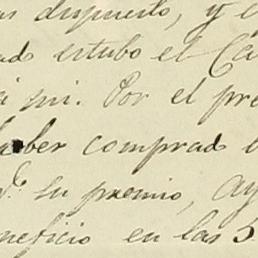 dispuesto, y e
ad estubo el Ca
mi. Por el pre
haber comprado
su premio, ay
neficio en las 5